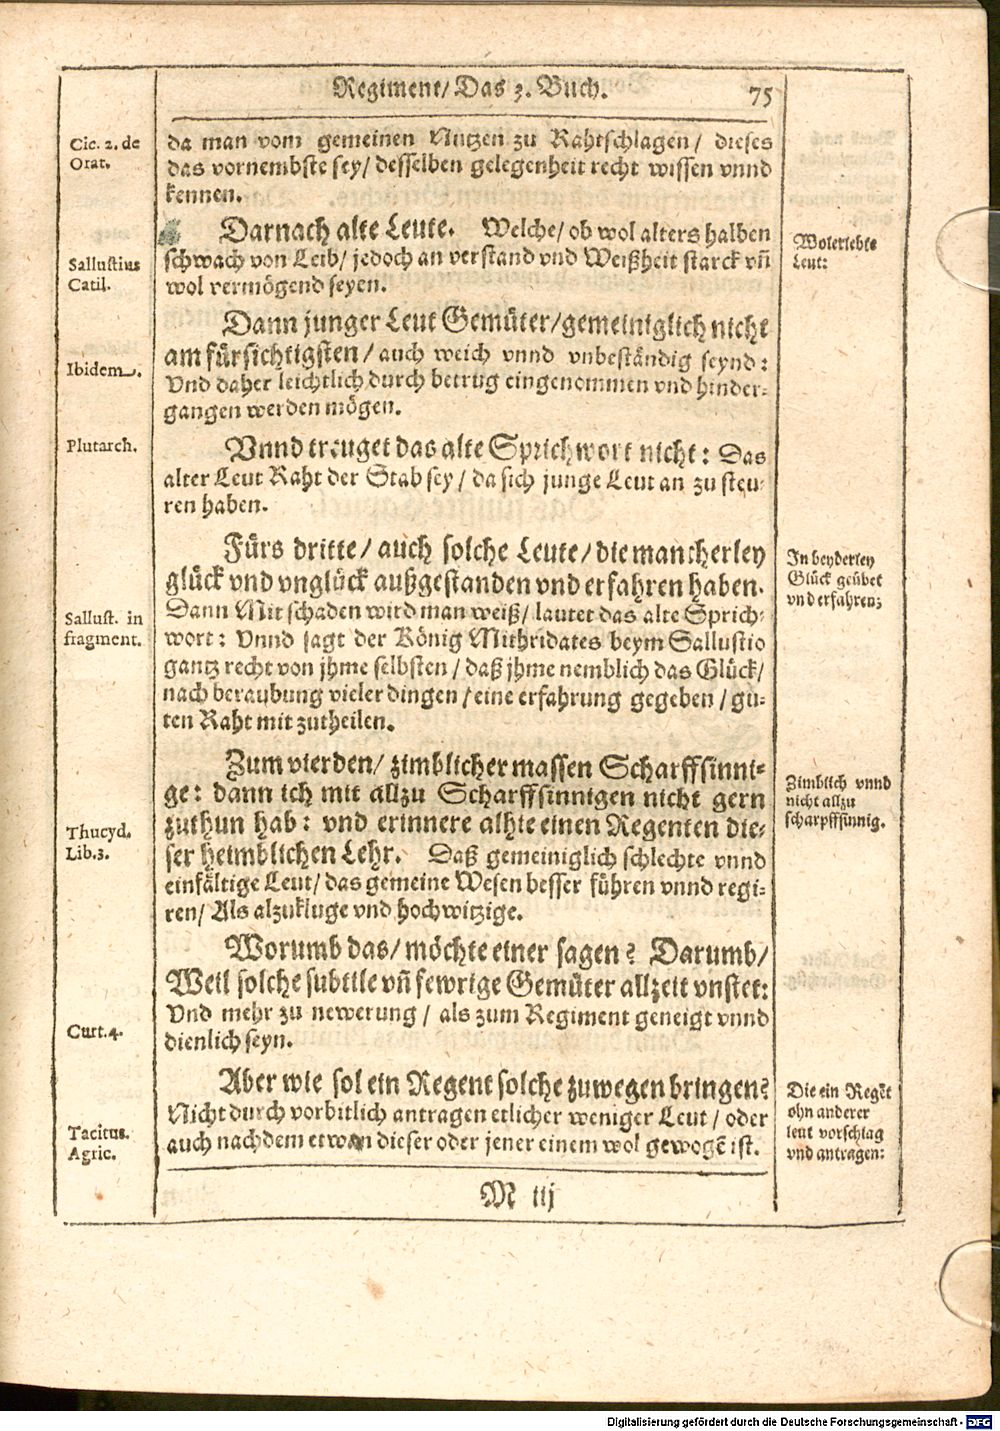 Regiment/ Das 3. Buch. 75
Cic. 2. de
Orat.
da man vom gemeinen Nutzen zu Rahtschlagen/ dieses
das vornembste sey/ desselben gelegenheit recht wissen vnnd
kennen.
Darnach alte Leute. Welche/ ob wol alters halben
schwach von Leib/ jedoch an verstand vnd Weißheit starck vñ
wol vermögend seyen.
Sallustius
Catil.
Wolerlebte
Leut:
Dann junger Leut Gemüter/gemeiniglich nicht
am fürsichtigsten/ auch weich vnnd vnbeständig seynd:
Vnd daher leichtlich durch betrug eingenommen vnd hinder-
gangen werden mögen.
Ibidem.
Plutarch.
Vnnd treuget das alte Sprichwort nicht: Das
alter Leut Raht der Stab sey/ da sich junge Leut an zu steu-
ren haben.
Fürs dritte/ auch solche Leute/ die mancherley
glück vnd vnglück außgestanden vnd erfahren haben.
Dann Mit schaden wird man weiß/ lautet das alte Sprich-
wort: Vnnd sagt der König Mithridates beym Sallustio
gantz recht von jhme selbsten/ daß jhme nemblich das Glück/
nach beraubung vieler dingen/ eine erfahrung gegeben/ gu-
ten Raht mit zutheilen.
In beyderley
Glück geübet
vnd erfahren;
Sallust. in
fragment.
Zum vierden/ zimblicher massen Scharffsinni-
ge: dann ich mit allzu Scharffsinnigen nicht gern
zuthun hab: vnd erinnere alhie einen Regenten die-
ser heimblichen Lehr. Daß gemeiniglich schlechte vnnd
einfältige Leut/ das gemeine Wesen besser führen vnnd regi-
ren/ Als alzukluge vnd hochwitzige.
Zimblich vnnd
nicht allzu
scharpffsinnig.
Thucyd.
Lib.3.
Worumb das/ möchte einer sagen? Darumb/
Weil solche subtile vñ fewrige Gemüter allzeit vnstet:
Vnd mehr zu newerung/ als zum Regiment geneigt vnnd
dienlich seyn.
Curt.4.
Aber wie sol ein Regent solche zuwegen bringen?
Nicht durch vorbitlich antragen etlicher weniger Leut/ oder
auch nachdem etwan dieser oder jener einem wol gewogẽ ist.
Die ein Regẽt
ohn anderer
leut vorschlag
vnd antragen:
Tacitus.
Agric.
M iij
Digitalisierung gefördert durch die Deutsche Forschungsgemeinschaft - DFG